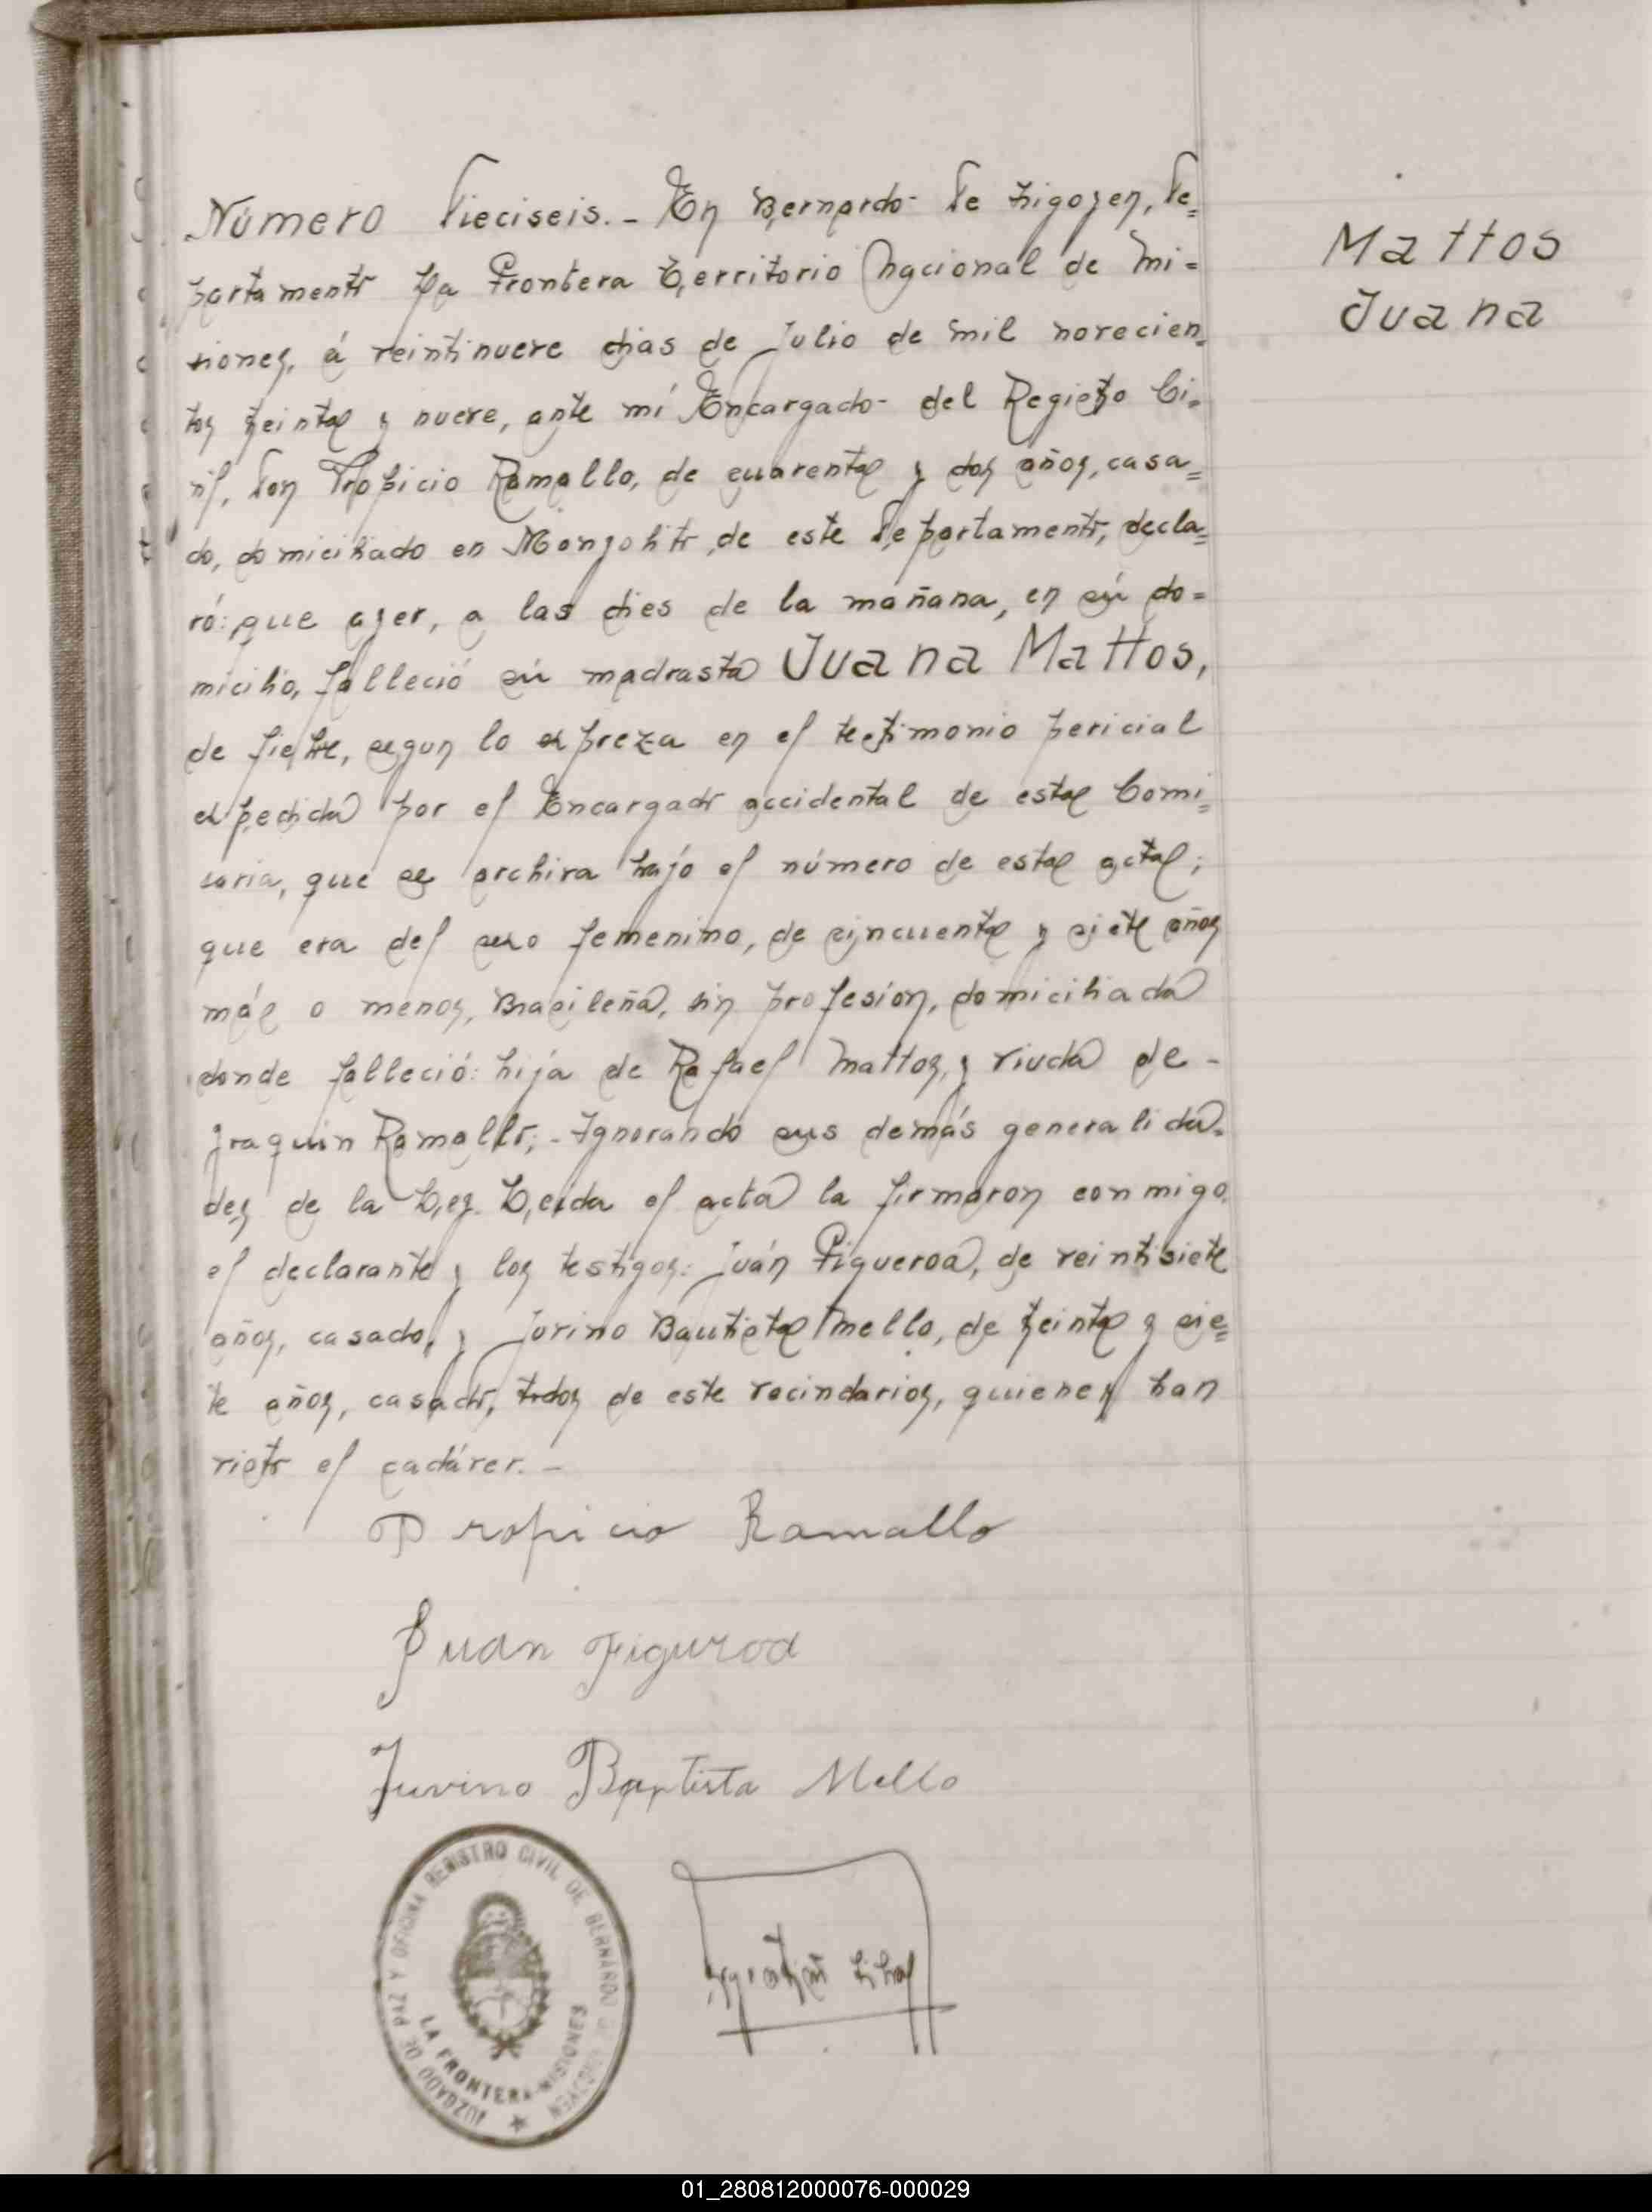 Número Dieciseis.- En Bernardo de Irigoyen, De=
partamento La Frontera Territorio Nacional de Mi=
siones, á veintinueve dias de Julio de mil novecien=
tos treinta y nueve, ante mí Encargado del Registro Ci=
vil, Don Propicio Ramallo, de cuarenta y dos años, casa=
do, domiciliado en Monzolito, de este Departamento, decla=
ró: que ayer, a las dies de la mañana, en sú do=
micilio, falleció sú madrasta Juana Mattos,
de fiebre, segun lo expreza en el testimonio pericial
expedida por el Encargado accidental de esta Comi=
saria, que se archiva bajo el número de esta acta;
que era del sexo femenino, de cincuenta y siete años
más o menos, Brasileña, sin profesión, domiciliada
donde falleció: hija de Rafael Mattos, y viuda de -
Joaquin Ramallo; - Ignorando sus demás generalida=
des de la Ley. Leida el acta la firmaron conmigo,
el declarante y los testigos: Juán Figueroa, de veintisiete
años, casado, y Jovino Bautista Mello, de treinta y sie=
te años, casado, todos de este vecindarios, quienes han
visto el cadáver. -
Mattos
Juana
Propicio Ramallo
Juan Figuroa
Juvino Baptista Mello
JUZGADO DE PAZ Y OFICINA REGISTRO CIVIL DE BERNARDO DE IRIGOYEN
LA FRONTERA-MISIONES
01_280812000076-000029